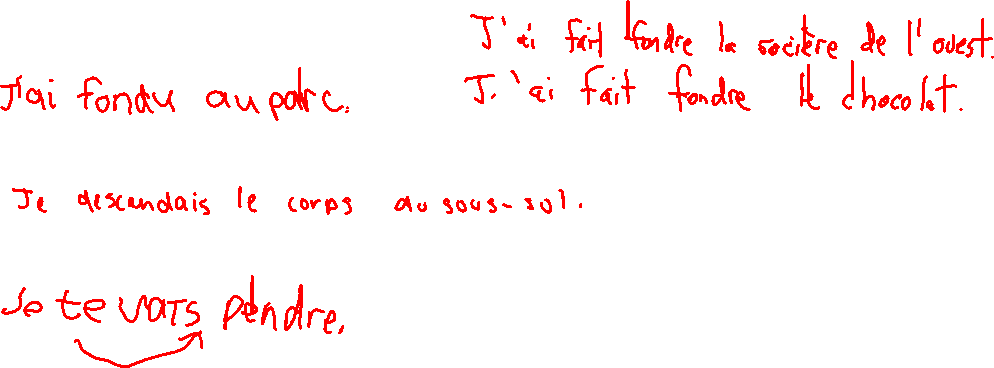 J'ai fait fondre la socière de l'ouest.
J'ai fondu au parc.
J.'ai fait fondre le chocolat.
Je descendais le corps au sous-sol.
Je te vais pendre.